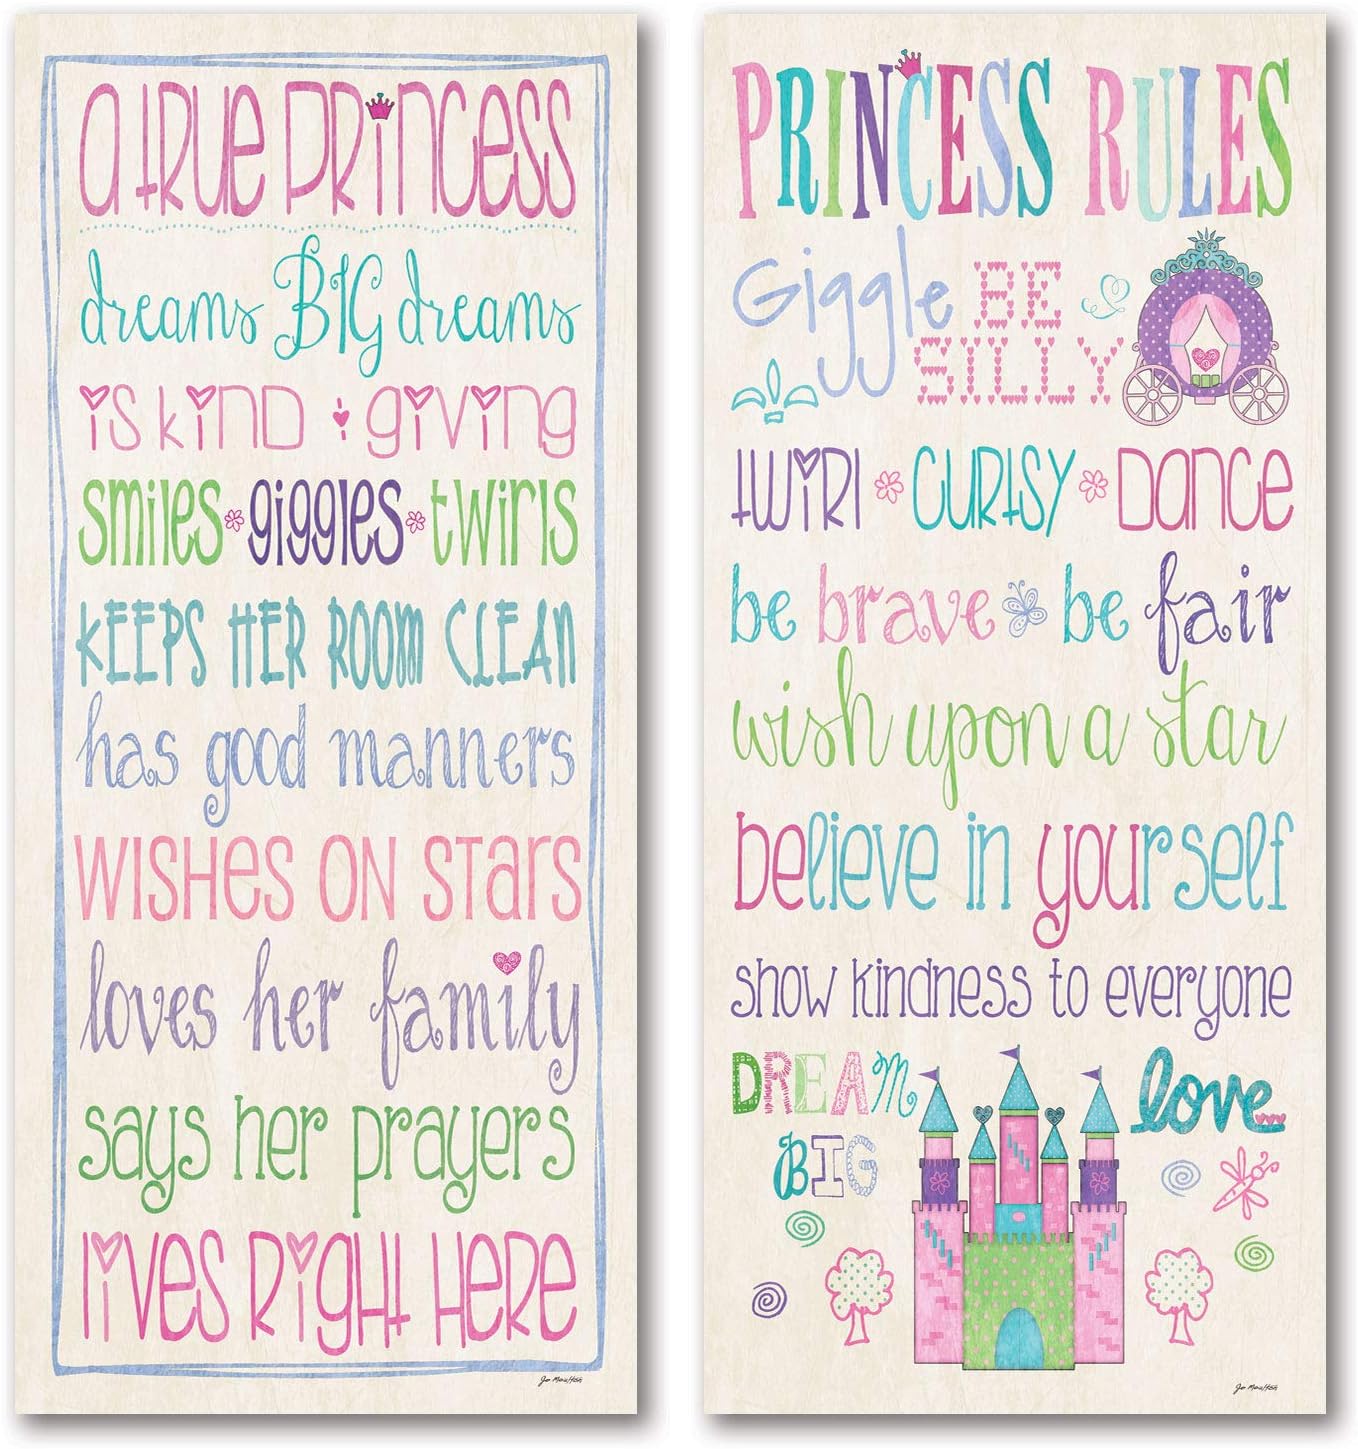 a true princess
dreams BIG dreams
is kind giving
smiles giggles twirls
KEEPS HER ROOM CLEAN
has good manners
WISHES ON STARS
loves her family
says her prayers
lives RIGHT HERE
Jo Moulton
PRINCESS RULES
Giggle BE
SILLY
twirl CURTSY DANCE
be brave be fair
wish upon a star
believe in yourself
show kindness to everyone
DREAM love
BIG
Jo Moulton